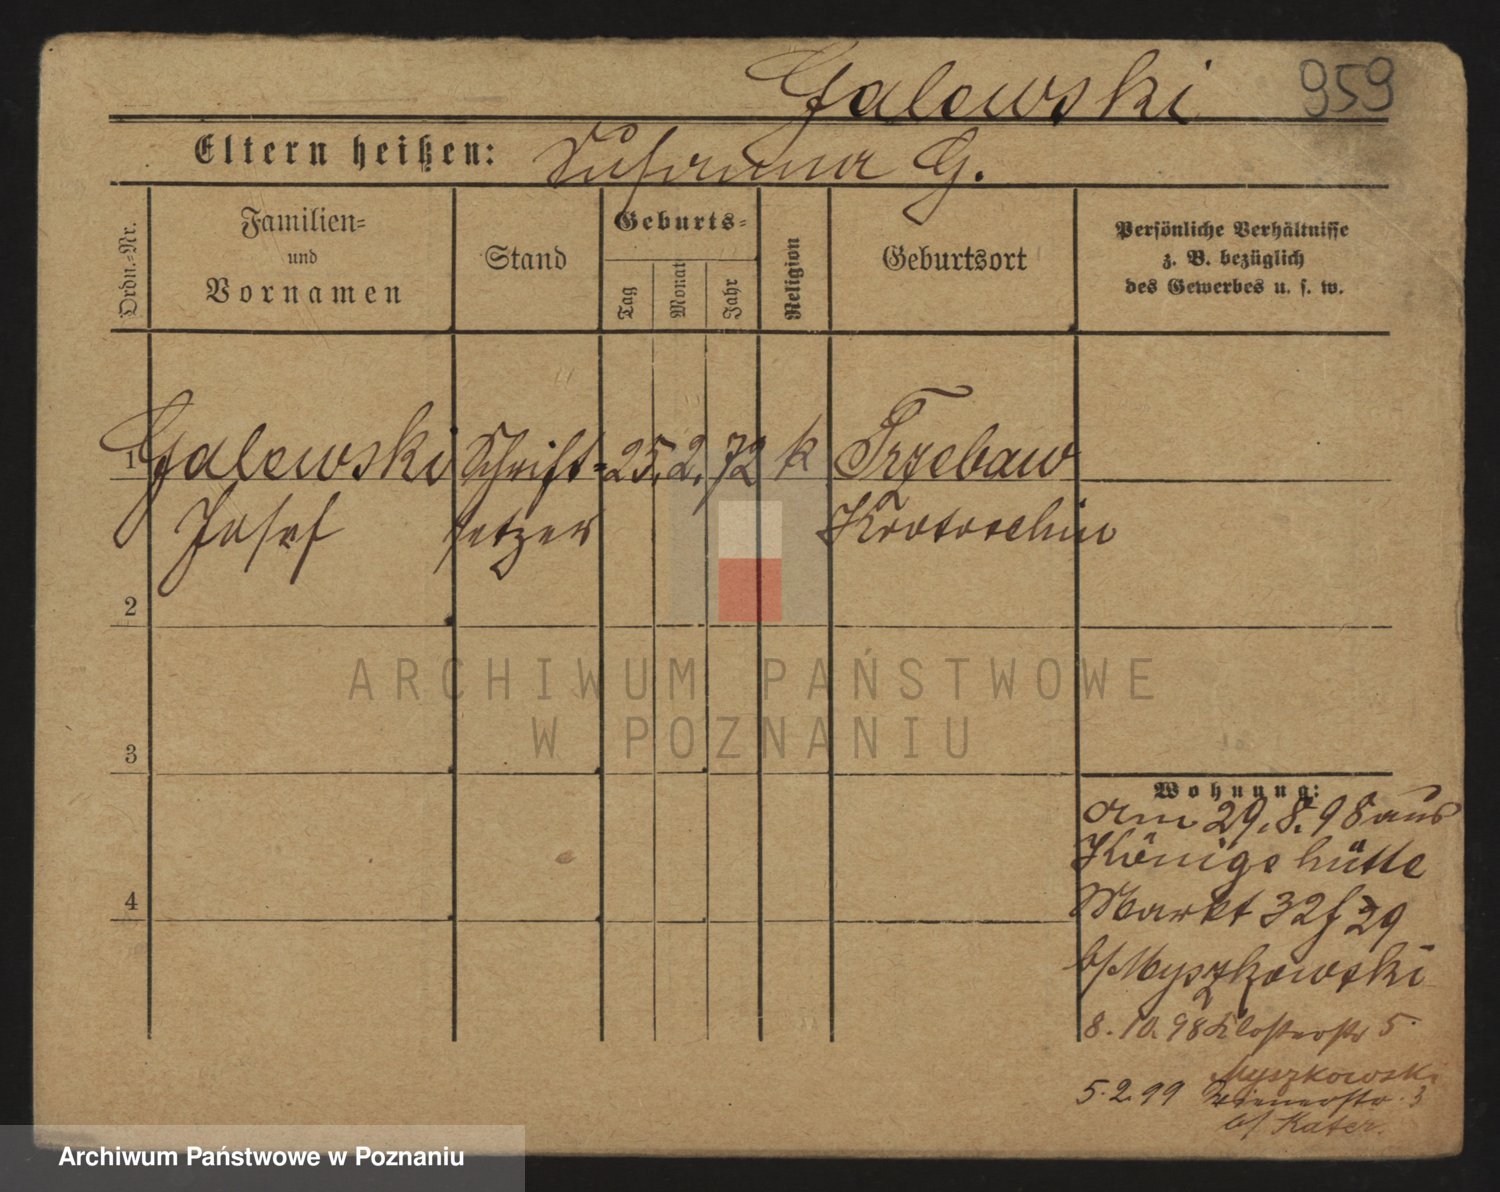 Galewski 959
Eltern heißen: Susanna G.
Ordn.-Nr.
Familien-
und
Vornamen
Stand
Geburts-
Tag
Monat
Jahr
Religion
Geburtsort
Persönliche Verhältnisse
z. B. bezüglich
des Gewerbes u. s. w.
1 Galewski Schrift- 25. 2. 72 k Trzebaw
Josef setzer Krotoschin
2
3
4
ARCHIWUM PAŃSTWOWE
W POZNANIU
Wohnung:
am 29.8.98 aus
Königshütte
Markt 32 f 29
b/ Myszkowski
8.10.98 Klosterstr 5
Myszkowski
5.2.99 Wienerstr. 3
b/ Kater.
Archiwum Państwowe w Poznaniu